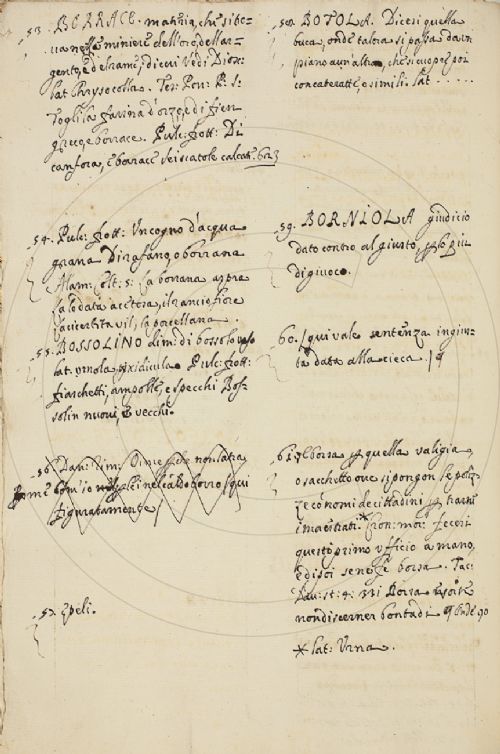 53. BORRACE. materia, che si be=
nelle miniere dell'oro, dell'ar=
gento, e del rame, di cui vedi Dios:
lat. Chrysocolla. Tes: Pou: P. S:
Togli la farina d'orzo, e di fien
greco, e borrace. Pulc: frott: Di
canfora, e borrace sei scatole calcate.
54. Pulc: frott: Un cogno d'acqua
Di rafano, o borrana
Alam: Colt: 5: La borrana aspra
La lodata acetosa, il rancio fiore
la porcellana.
55. BOSSOLINO dim: di bossolo vaso
lat. Pulc: frott:
fiaschetti, ampolle, e specchi Bos=
solin nuovi, e vecchi.
56. Dan: rim: Oimè che non latra
me, com'io nel caldo borro / qui
figuratamente /
57. Epeli.
58. BOTOLA. Dicesi quella
buca, onde talora si passa da un
piano a un altro, che si cuopre poi
con cateratte, o simili. lat. . . . . .
59. BORNIOLA giudicio
dato contro al giusto, più
di giuoco.
60. / qui vale sentenza ingius=
ta data alla cieca. /
61. E borsa quella valigia,
o sacchetto ove si pongon le poliz=
ze co' nomi de' cittadini trarre
i maestrati. * Cron: mor: fecesi
questo primo ufficio a mano,
e di poi se n'è borsa. Tac:
Dav: st: 4: 331 Borsa, e sorte
non discerner bontadi
* lat: Urna.